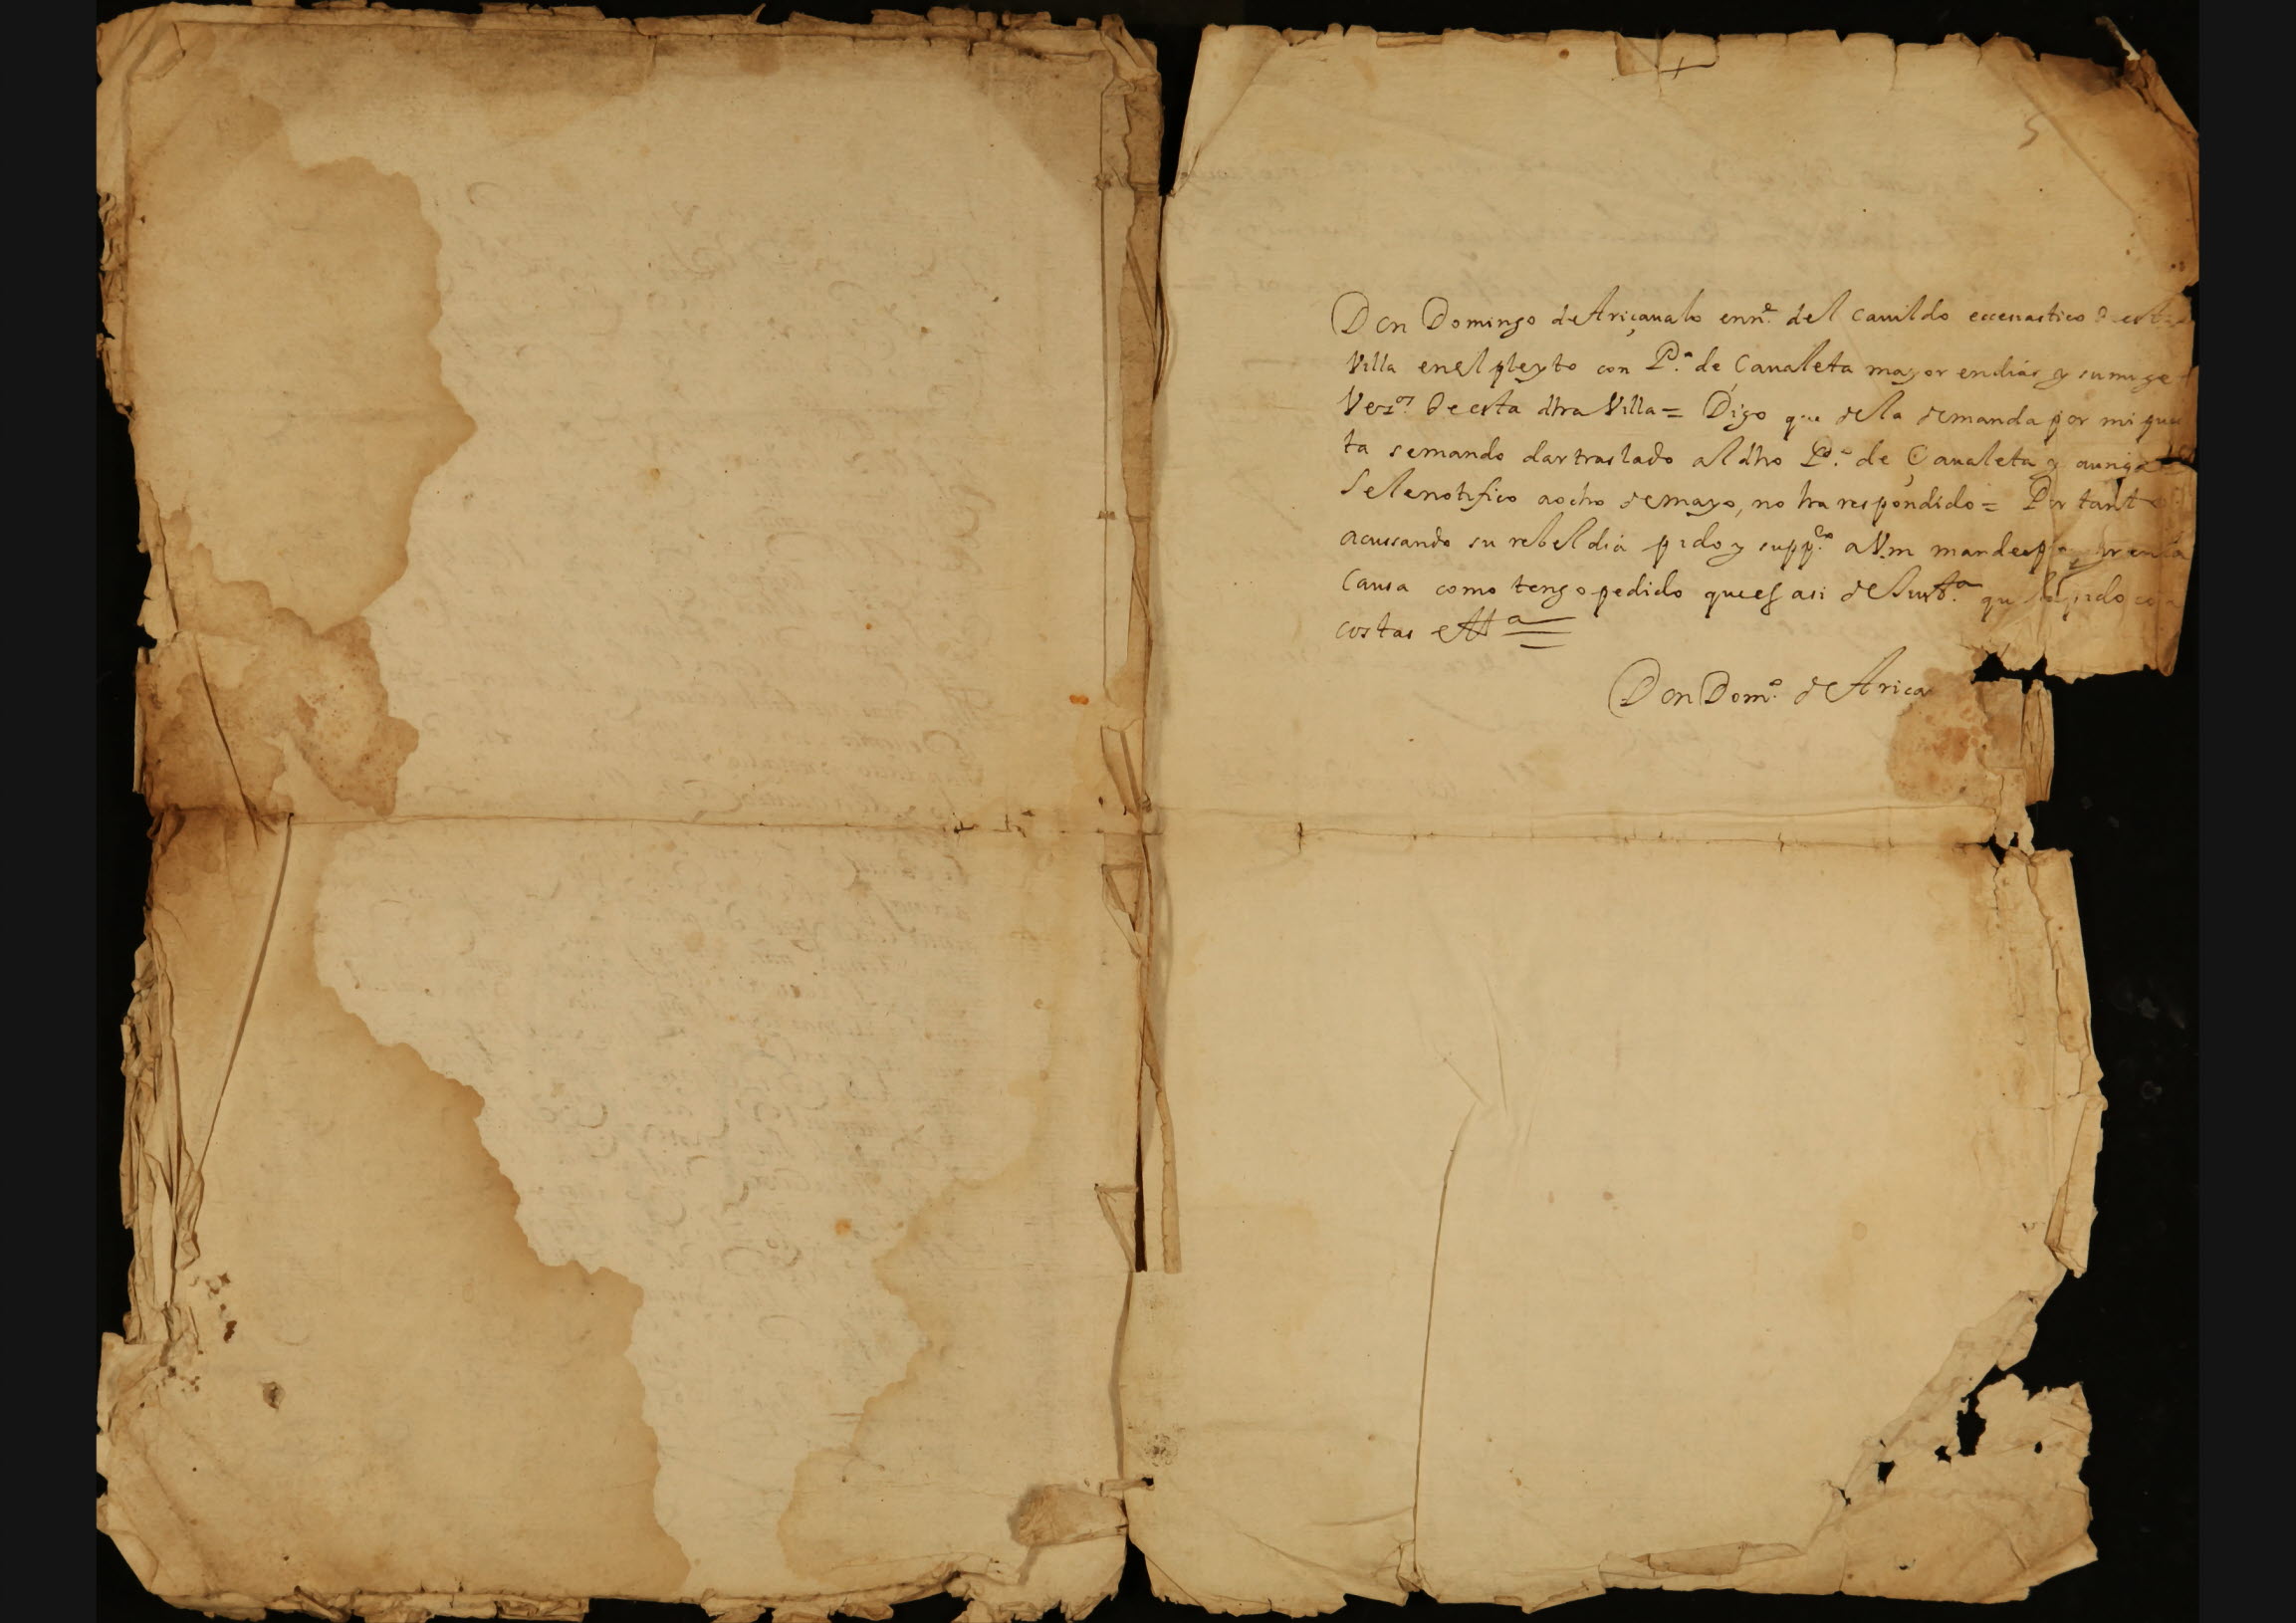 5
Don Domingo de Ariçaualo enn.e del cauildo eccesiastico de esta
Villa en el pleyto con P.o de Çaualeta mayor en dias y su muger
Vez.os de esta dha Villa = Digo que de la demanda por mi pues
ta se mando dar traslado al dho P.o de Çaualeta y aunque
se le notifico a ocho de mayo, no ha respondido = Por tanto
acussando su rebeldia pido y supp.co a V.m mande en la
causa como tengo pedido que es asi de Just.a que pido con
costas ett.a
Don Dom.o de Arica